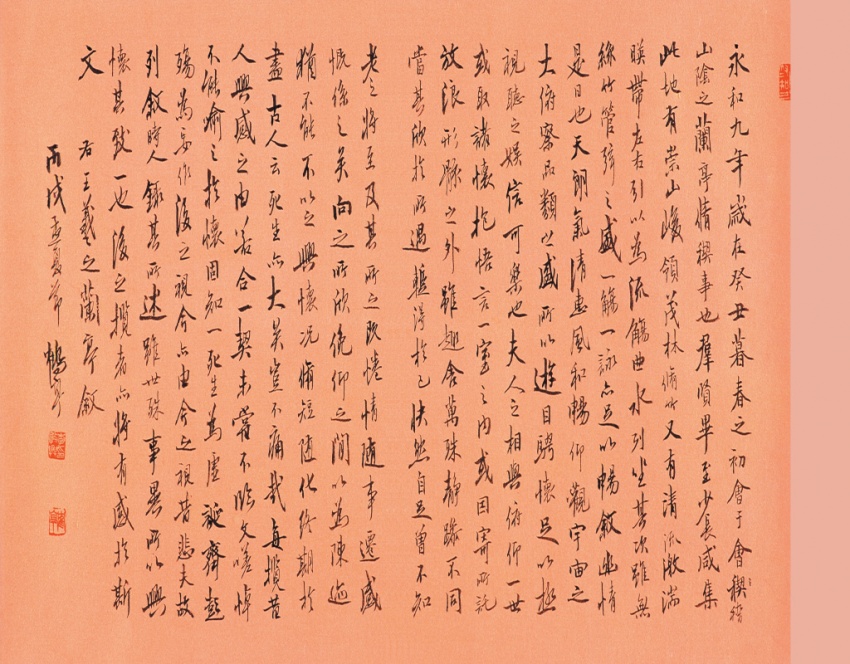 永和九年歲在癸丑暮春之初會于會稧稽
山陰之蘭亭脩稧事也羣賢畢至少長咸集
此地有崇山峻領茂林脩竹又有清流激湍
暎帶左右引以為流觴曲水列坐其次雖無
絲竹管弦之盛一觴一詠亦足以暢敘幽情
是日也天朗氣清惠風和暢仰觀宇宙之
大俯察品類之盛所以遊目騁懷足以極
視聽之娛信可樂也夫人之相與俯仰一世
或取諸懷抱悟言一室之內或因寄所託
放浪形骸之外雖趣舍萬殊靜躁不同
當其欣於所遇蹔得於己怏然自足曾不知
老之將至及其所之既惓情隨事遷感
慨係之矣向之所欣俛仰之間以為陳迹
猶不能不以之興懷況脩短隨化終期於
盡古人云死生亦大矣豈不痛哉每攬昔
人興感之由若合一契未嘗不臨文嗟悼
不能喻之於懷固知一死生為虛誕齊彭
殤為妄作後之視今亦由今之視昔悲夫故
列敘時人錄其所述雖世殊事異所以興
懷其致一也後之攬者亦將有感於斯
文 右王羲之蘭亭敘
丙戌孟夏節